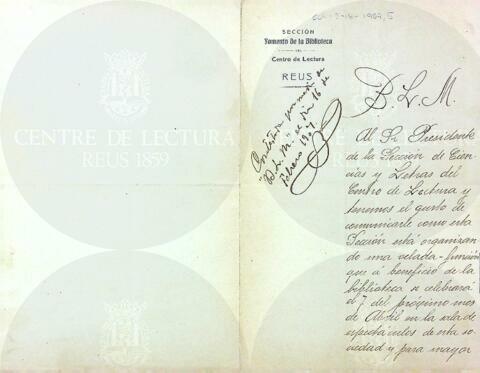 SECCIÓN
Fomento de la Biblioteca
DEL
Centro de Lectura
REUS
Contestada por medio de
B. L. M. el dia 16 de
Febrero 1907
B. L. M.
Al Sr Presidente
de la Sección de Cien
cias y Letras del
Centro de Lectura y
tenemos el gusto de
comunicarle como esta
Sección está organizan
do una velada-función
que á beneficio de la
biblioteca se celebrará
el 7 del próximo mes
de Abril en la sala de
espectáculos de esta so
ciedad y para mayor
CENTRE DE LECTURA
REUS 1859
CENTRE DE LECTURA
REUS 1859